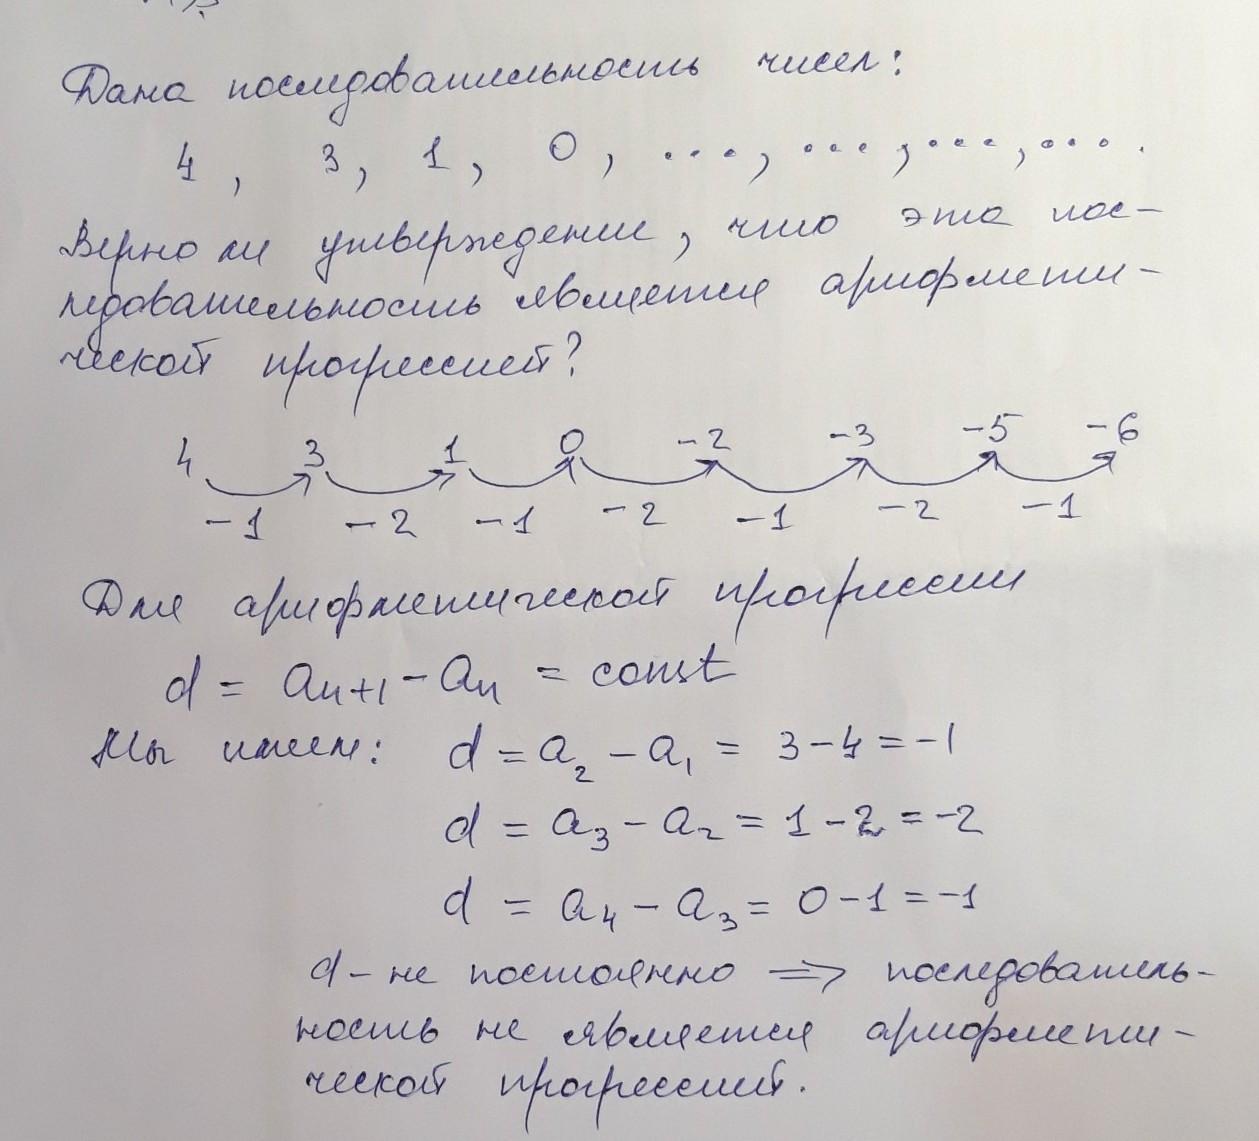 Дана последовательность чисел:
4, 3, 1, 0, ..., ..., ..., ... .
Верно ли утверждение, что эта пос-
ледовательность является арифмети-
ческой прогрессией?
4 3 1 0 -2 -3 -5 -6
-1 -2 -1 -2 -1 -2 -1
Для арифметической прогрессии
d = aₙ₊₁ - aₙ = const
Мы имеем: d = a₂ - a₁ = 3 - 4 = -1
d = a₃ - a₂ = 1 - 2 = -2
d = a₄ - a₃ = 0 - 1 = -1
d - не постоянно ⇒ последователь-
ность не является арифмети-
ческой прогрессией.